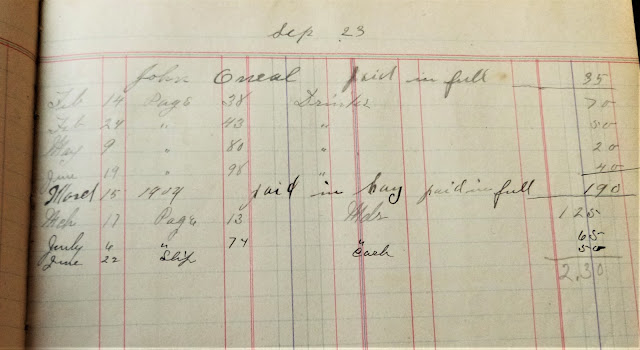 Sep 23
John Oneal paid in full 35
Feb 14 Page 38 Drinks 70
Feb 24 " 43 " 50
May 9 " 80 " 20
June 19 " 98 " 40
March 15 1909 paid in hay paid in full 190
Mch 17 Page 13 Mds 125
July 6 " 74 " 65
June 22 Slip Cash 50
2.30